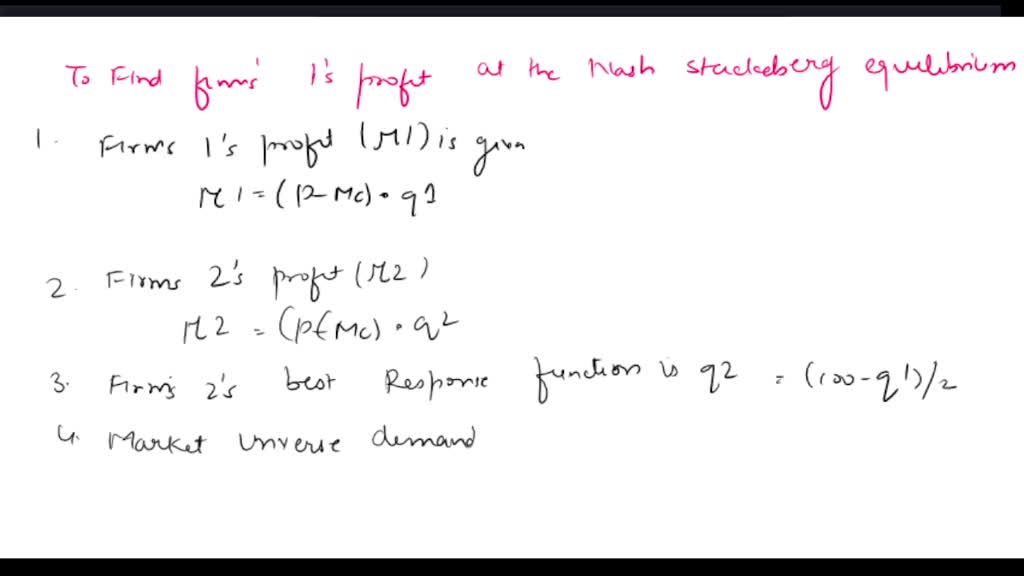 To Find firms' 1's profit at the Nash stackeberg equilibrium
1. Firms 1's profit (π1) is given
π1 = (P-Mc) • q1
2. Firms 2's profit (π2)
π2 = (P-Mc) • q2
3. Firm's 2's best Response function is q2 = (100-q1)/2
4. Market inverse demand